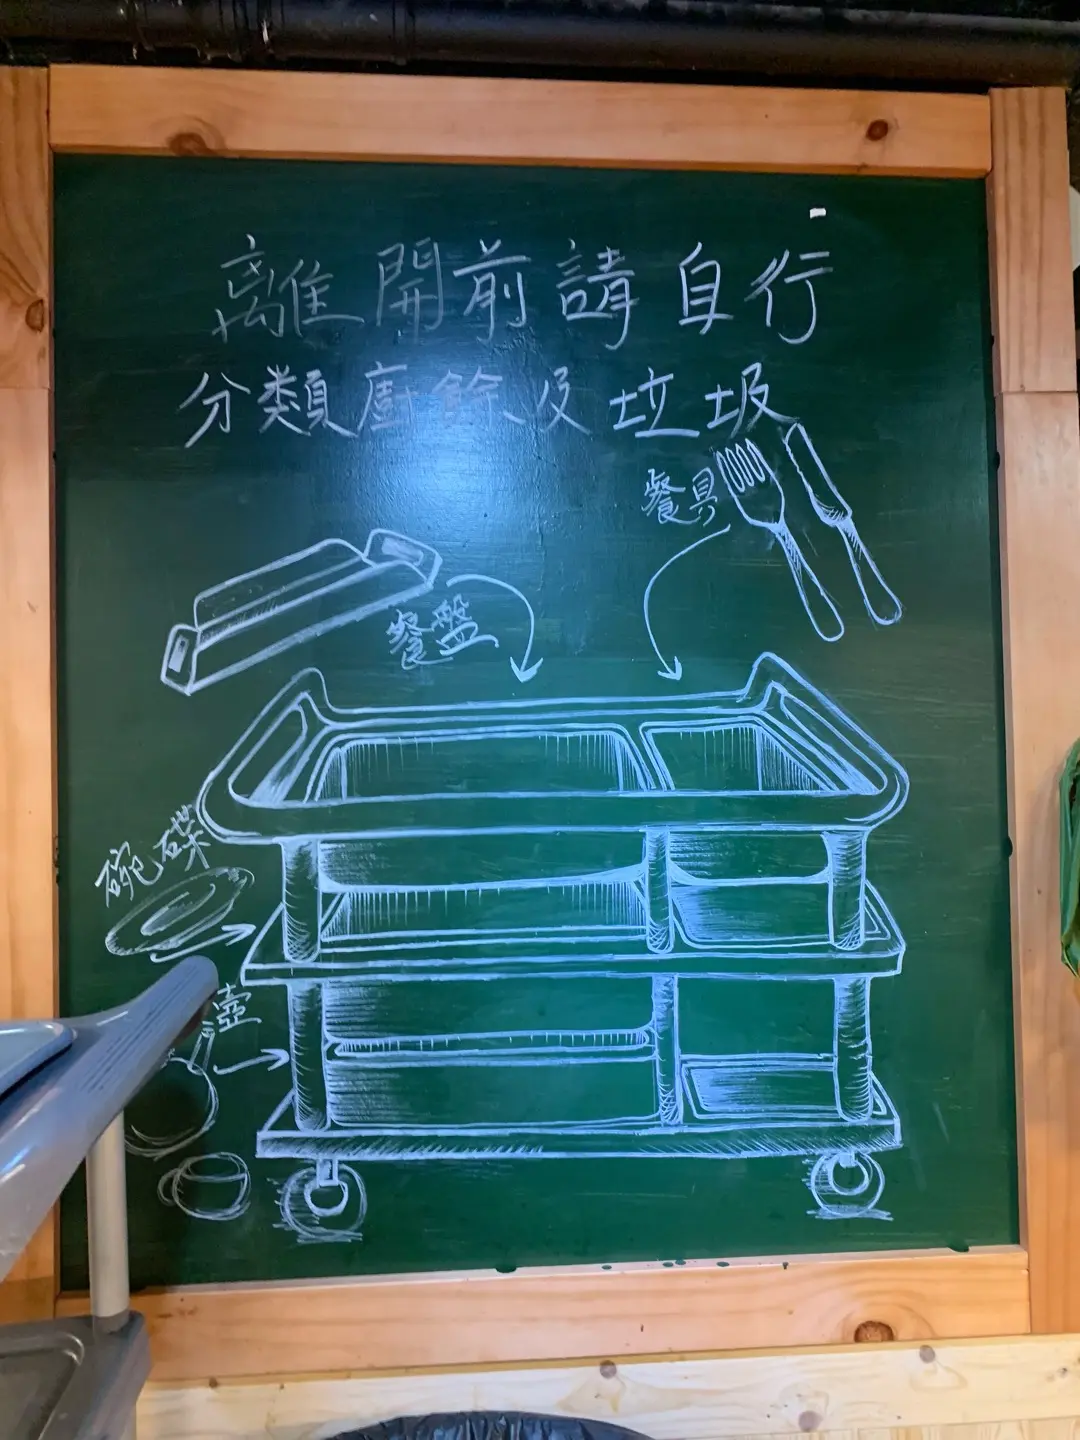 離開前請自行
分類廚餘及垃圾
餐具
餐盤
碗碟
壺